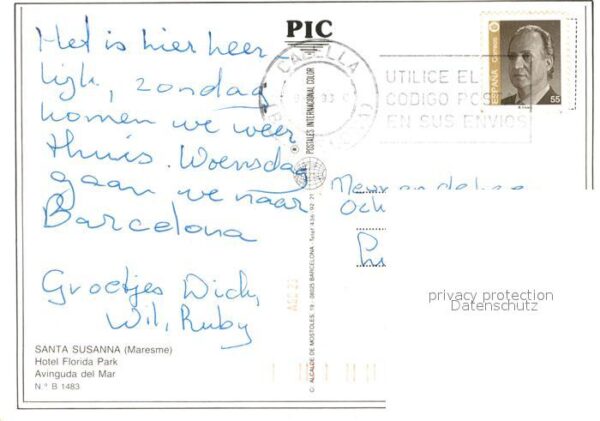 Het is hier heer
lijk, zondag
komen we weer
thuis. Woensdag
gaan we naar
Barcelona
Groetjes Dick,
Wil, Ruby
SANTA SUSANNA (Maresme)
Hotel Florida Park
Avinguda del Mar
N.º B 1483
PIC
POSTALES INTERNACIONAL COLOR
C/. ALCALDE DE MOSTOLES, 19 - 08025 BARCELONA - Telef.
CALELLA
93
UTILICE EL
CODIGO POS
EN SUS ENVIOS
ESPAÑA
Correos
55
privacy protection
Datenschutz